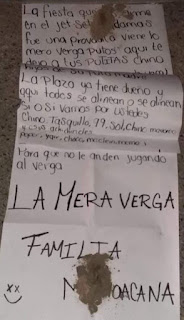 La fiesta que
en el jet set
fue una viene lo
mero verga putos aqui te
dejo a tus PUTITAS chino
La Plaza ya tiene dueño y
aqui todos se alinean o se alinean
si o si vamos por ustedes
Chino Tasquillo, 79, Sol, Chino moreno
Para que no le anden jugando
al verga
LA MERA VERGA
FAMILIA
M OACANA